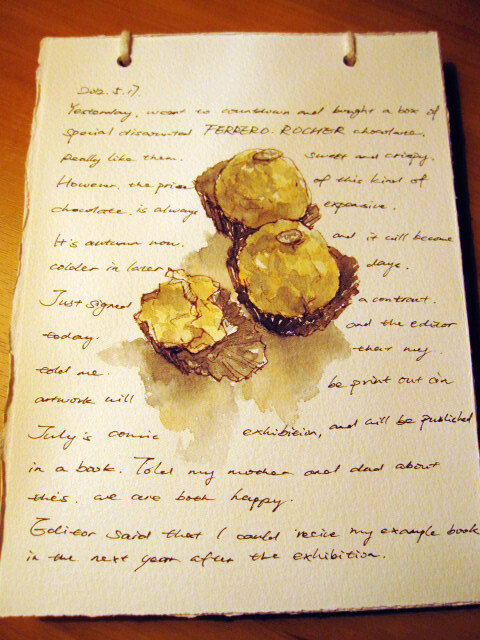 2012.5.17.
Yesterday, went to countdown and bought a box of
special discounted FERRERO ROCHER chocolate,
Really like them. sweet and crispy.
However, the price of this kind of
chocolate is always expensive.
It's autumn now, and it will become
colder in later days.
Just signed a contract
today. and the editor
told me that my
artwork will be print out in
July's comic exhibition, and will be published
in a book. Told my mother and dad about
this, we are both happy.
Editor said that I could recive my example book
in the next year after the exhibition.